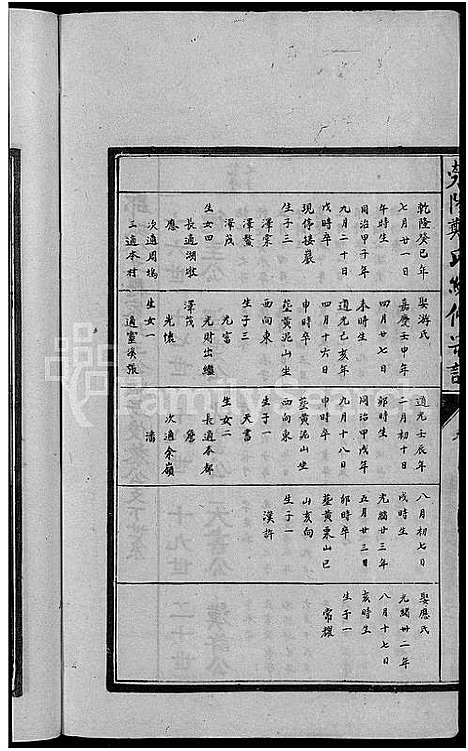 乾隆癸巳年
七月廿一日
午時生
同治甲子年
九月二十日
戌時卒
現停接嚴
生子三
澤棠
澤鰲
澤茂
生女四
長適湖墩
應
次適周塢
三適本村
娶游氏
嘉慶壬申年
四月廿七日
未時生
道光己亥年
四月十六日
申時卒
塟黄泥山坐
西向東
生子三
光富
光財出繼
澤茂
光懷
生女一
適靈溪張
道光壬辰年
二月初十日
卯時生
同治甲戌年
九月十八日
申時卒
塟黄泥山坐
西向東
生子一
天書
生女二
長適本都
詹
次適余嶺
潘
八月初七日
戌時生
光緒廿三年
五月廿三日
卯時卒
塟黄栗山巳
山亥向
生子一
漢許
娶應氏
光緒廿二年
八月十七日
亥時生
生子一
常耀
FamilySearch